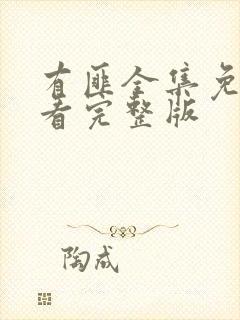 有匪全集免
看完整版
陶成